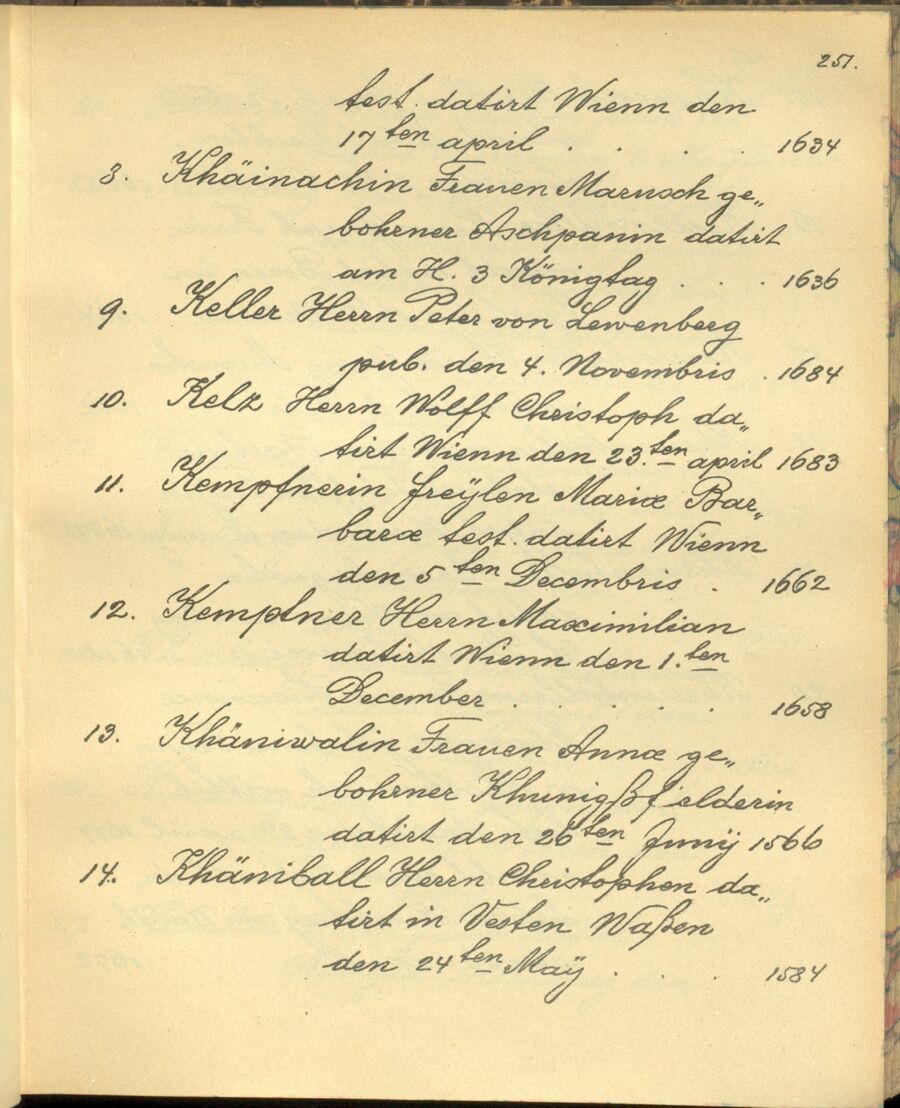 251.
test. datirt Wienn den
17ten april . . . . 1634
8. Khäinachin Frauen Marusch ge„
bohrner Aschpanin datirt
am H. 3 Königtag . . . 1636
9. Keller Herrn Peter von Lewenberg
pub. den 4. Novembris . 1684
10. Kelz Herrn Wolff Christoph da„
tirt Wienn den 23.ten april 1683
11. Kempfnerin freÿlen Mariæ Bar„
baræ test. datirt Wienn
den 5ten Decembris . 1662
12. Kemptner Herrn Maximilian
datirt Wienn den 1.ten
December . . . . . 1658
13. Khäniwalin Frauen Annæ ge„
bohrner Khunigßfelderin
datirt den 26ten Junÿ 1566
14. Khäniball Herrn Christophen da„
tirt in Vesten Waßen
den 24ten Maÿ . . . 1584